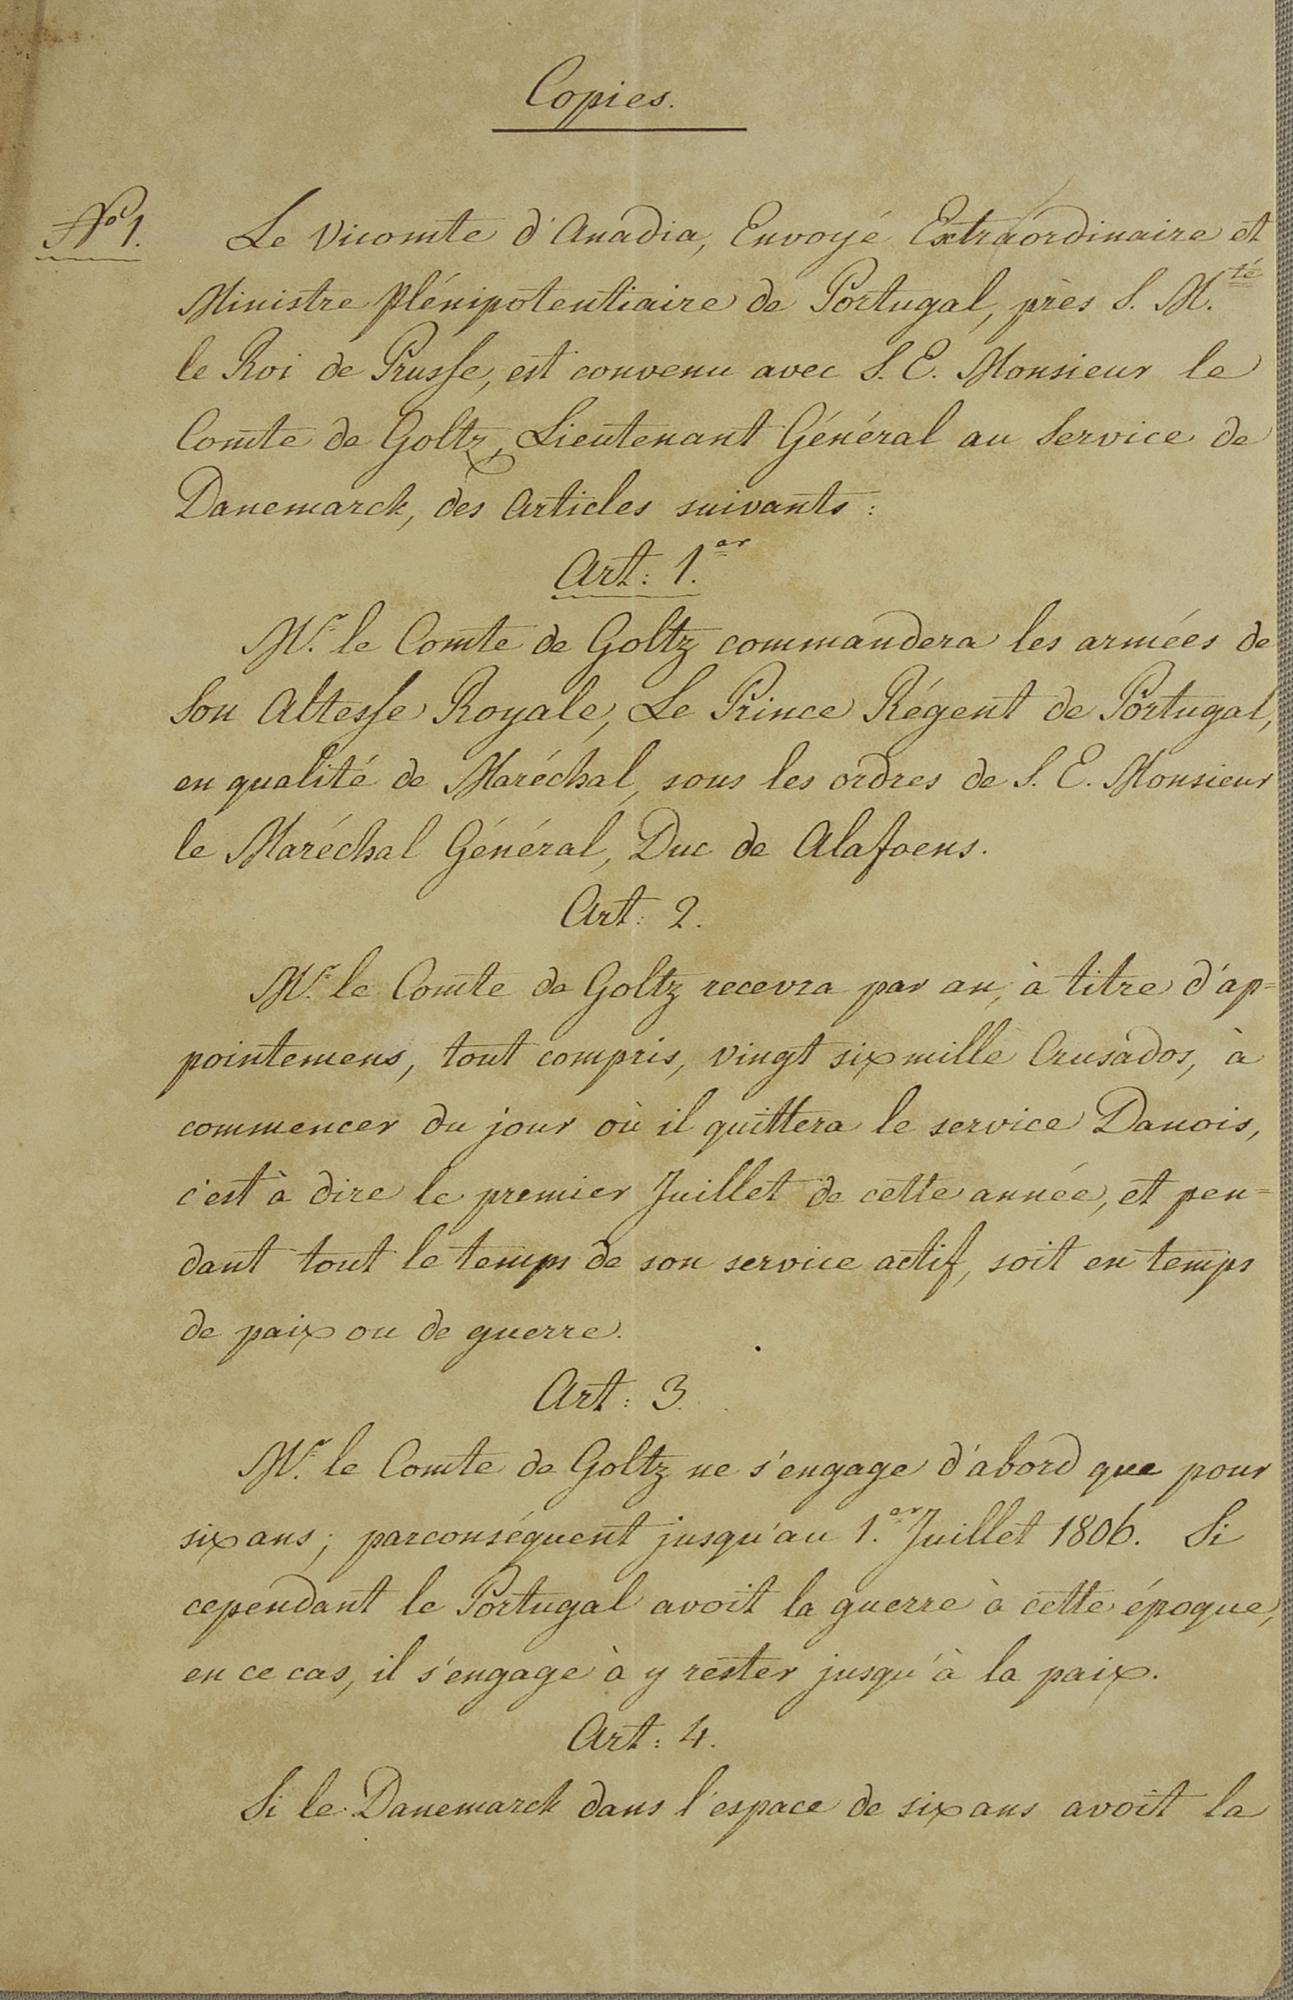 Copies.
No 1.
Le Vicomte d'Anadia, Envoyé Extraórdinaire et
Ministre plénipotentiaire de Portugal, près S. M.té
le Roi de Prusse, est convenu avec S. E. Monsieur le
Comte de Goltz, Lieutenant Général au Service de
Danemarck, des Articles suivants :
Art: 1.er
Mr. le Comte de Goltz commandera les armées de
Son Altesse Royale, Le Prince Régent de Portugal,
en qualité de Maréchal, sous les ordres de S. E. Monsieur
le Maréchal Général, Duc de Alafoens.
Art: 2.
Mr. le Comte de Goltz recevra par an, à titre d'ap=
pointemens, tout compris, vingt six mille Crusados, à
commencer du jour où il quittera le service Danois,
c'est à dire le premier Juillet de cette année, et pen=
dant tout le temps de son service actif, soit en temps
de paix ou de guerre.
Art: 3.
Mr. le Comte de Goltz ne s'engage d'abord que pour
six ans ; parconséquent jusqu'au 1.er Juillet 1806. Si
cependant le Portugal avoit la guerre à cette époque,
en ce cas, il s'engage à y rester jusqu'à la paix.
Art: 4.
Si le Danemarck dans l'espace de six ans avoit la